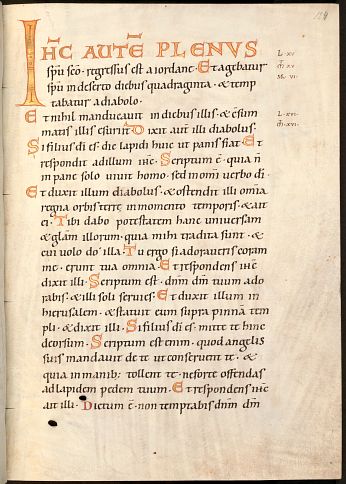 124
IHC AUTE PLENVS
spu sco regressus est a iordane. Et agebatur
spu in deserto diebus quadraginta · & temp
tabatur a diabolo ·
Et nihil manducavit in diebus illis · & c̄sum
matis illis esuriit. Dixit aut̄ illi diabolus ·
Si filius di es · dic lapidi huic ut panis fiat. Et
respondit ad illum ihc · Scriptum ē · quia ñ
in pane solo vivit homo · sed in om̄i verbo dī ·
Et duxit illum diabolus · & ostendit illi om̄ia
regna orbis terre in momento temporis · & ait
ei · Tibi dabo potestatem hanc universam
& gl̄am illorum · quia mihi tradita sunt · &
cui volo do illa · Tu ergo si adoraveris coram
me · erunt tua omnia · Et respondens ihc
dixit illi · Scriptum est · dn̄m dm̄ tuum ado
rabis · & illi soli servies · Et duxit illum in
hierusalem · & statuit eum supra pinnā tem
pli · & dixit illi · Si filius di es · mitte te hinc
deorsum · Scriptum est enim · quod angelis
suis mandavit de te ut conservent te · &
quia in manib; tollent te · ne forte offendas
ad lapidem pedem tuum · Et respondens ihc
ait illi · Dictum ē · non temptabis dn̄m dm̄
L·xv
M·xv
Mc vi
L·xvi
M·xvi